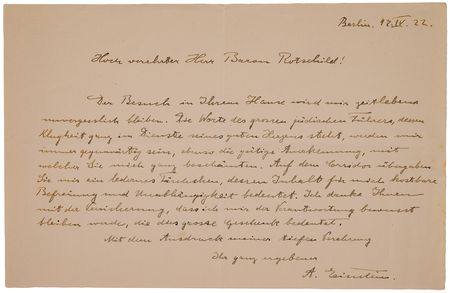 Berlin. 12.IX.22.
Hoch verehrter Herr Baron Rotschild!
Der Besuch in Ihrem Hause wird mir zeitlebens
unvergesslich bleiben. Die Worte des grossen jüdischen Führers, dessen
Klugheit ganz im Dienste seines guten Herzens steht, werden mir
immer gegenwärtig sein, ebenso die gütige Anerkennung, mit
welcher Sie mich ganz beschämten. Auf dem Corridor übergaben
Sie mir ein ledernes Täschchen, dessen Inhalt für mich kostbare
Befreiung und Unabhängigkeit bedeutet. Ich danke Ihnen
mit der Versicherung, dass ich mir der Verantwortung bewusst
bleiben werde, die das grosse Geschenk bedeutet.
Mit dem Ausdruck meiner tiefen Verehrung
Ihr ganz ergebener
A. Einstein.